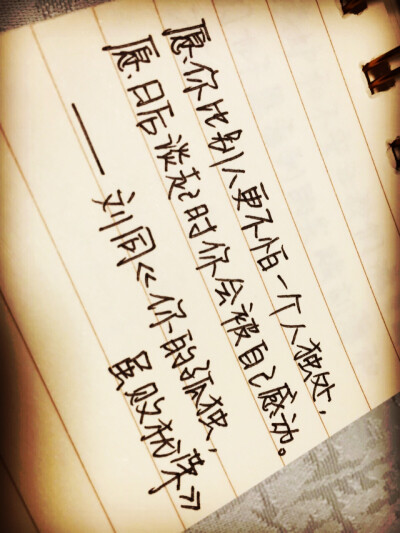 愿你比别人更不怕一个人独处，
愿日后谈起时你会被自己感动。
——刘同《你的孤独，
虽败犹荣》